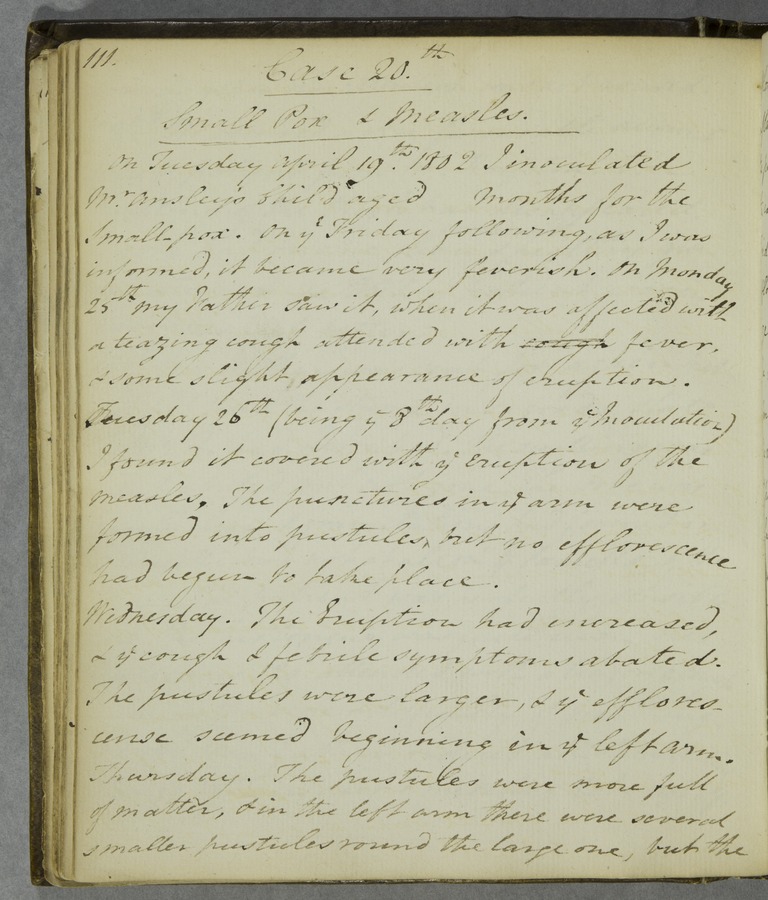 111.
Case 20.th
Small Pox & Measles.
On Tuesday April 19th. 1802 I inoculated
Mr. Ansley's Child aged     Months for the
Small-pox. On ye Friday following, as I was
informed, it became very feverish. On Monday
25th my Father saw it, when it was affected with
a teazing cough attended with cough fever,
& some slight appearance of eruption.
Tuesday 26th (being ye 8th day from ye Inoculation)
I found it covered with ye Eruption of the
measles. The punctures in ye arm were
formed into pustules, but no efflorescence
had begun to take place.
Wednesday. The Eruption had increased,
& ye cough & febrile symptoms abated.
The pustules were larger, & ye efflores-
cense seemed beginning in ye left arm.
Thursday. The pustules were more full
of matter, & in the left arm there were several
smaller pustules round the large one, but the